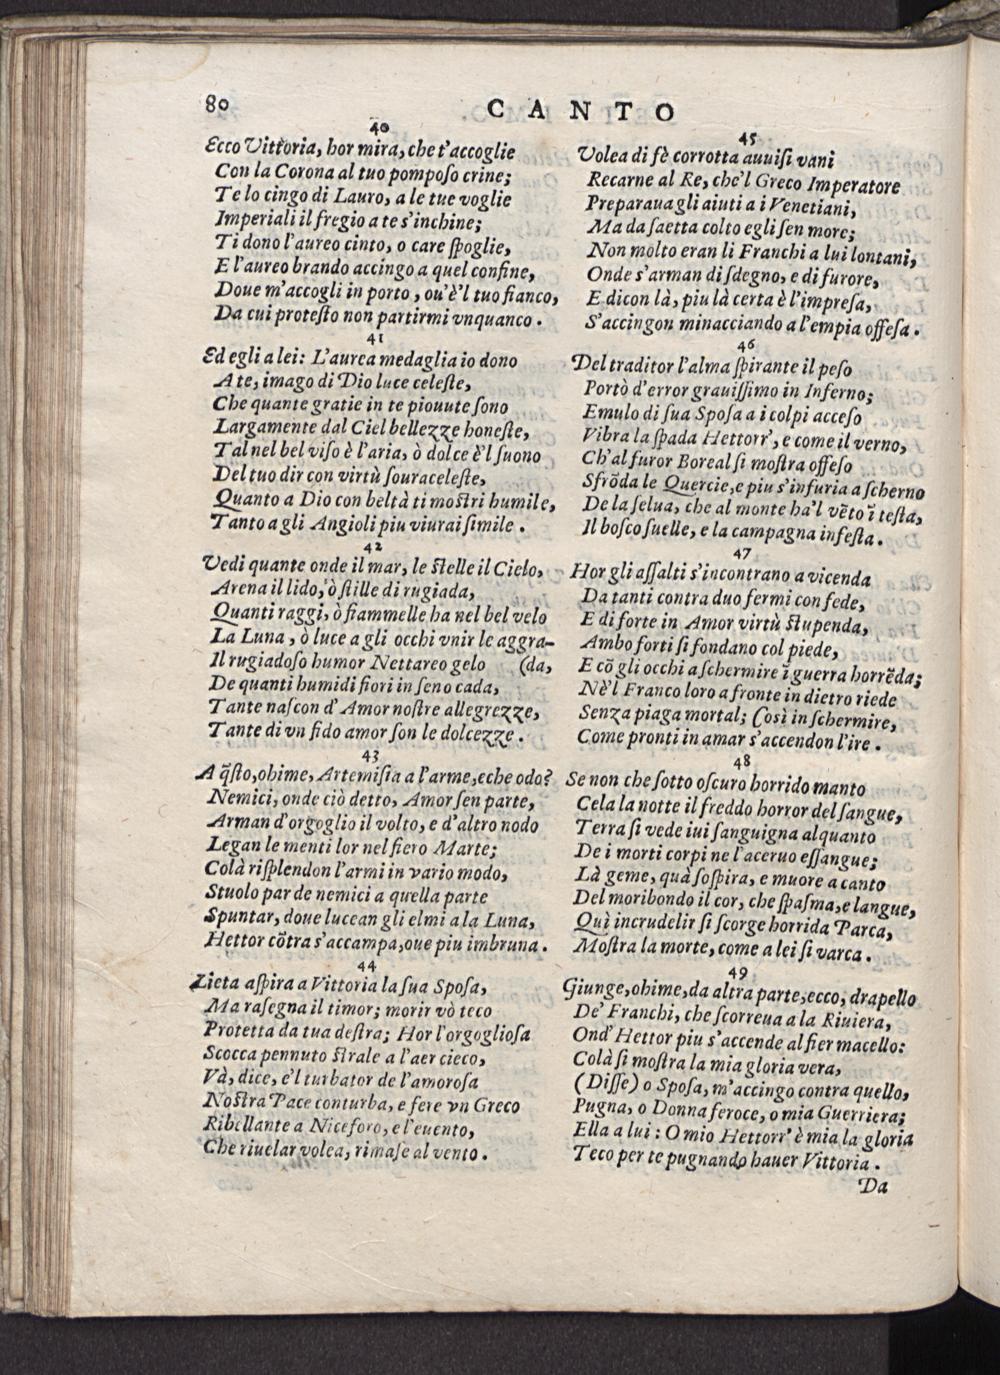 80
CANTO
40
Ecco Vittoria, hor mira, che t'accoglie
Con la Corona al tuo pomposo crine;
Te lo cingo di Lauro, a le tue voglie
Imperiali il fregio a te s'inchine;
Ti dono l'aureo cinto, o care spoglie,
E l'aureo brando accingo a quel confine,
Doue m'accogli in porto, ou'è'l tuo fianco,
Da cui protesto non partirmi vnquanco.
41
Ed egli a lei: L'aurea medaglia io dono
A te, imago di Dio luce celeste,
Che quante gratie in te piouute sono
Largamente dal Ciel bellezze honeste,
Tal nel bel viso è l'aria, ò dolce è'l suono
Del tuo dir con virtù souraceleste,
Quanto a Dio con beltà ti mostri humile,
Tanto a gli Angioli piu viurai simile.
42
Vedi quante onde il mar, le stelle il Cielo,
Arena il lido, ò stille di rugiada,
Quanti raggi, ò fiammelle ha nel bel velo
La Luna, ò luce a gli occhi vnir le aggra-
Il rugiadoso humor Nettareo gelo (da,
De quanti humidi fiori in seno cada,
Tante nascon d'Amor nostre allegrezze,
Tante di vn fido amor son le dolcezze.
43
A q̃sto, ohime, Artemisia a l'arme, e che odo?
Nemici, onde ciò detto, Amor sen parte,
Arman d'orgoglio il volto, e d'altro nodo
Legan le menti lor nel fiero Marte;
Colà risplendon l'armi in vario modo,
Stuolo par de nemici a quella parte
Spuntar, doue lucean gli elmi a la Luna,
Hettor cõtra s'accampa, oue piu imbruna.
44
Lieta aspira a Vittoria la sua Sposa,
Ma rasegna il timor; morir vò teco
Protetta da tua destra; Hor l'orgogliosa
Scocca pennuto strale a l'aer cieco,
Và, dice, e'l turbator de l'amorosa
Nostra Pace conturba, e fere vn Greco
Ribellante a Niceforo, e l'euento,
Che riuelar volea, rimase al vento.
45
Volea di fè corrotta auuisi vani
Recarne al Re, che'l Greco Imperatore
Preparaua gli aiuti a i Venetiani,
Ma da saetta colto egli sen more;
Non molto eran li Franchi a lui lontani,
Onde s'arman di sdegno, e di furore,
E dicon là, piu là certa è l'impresa,
S'accingon minacciando a l'empia offesa.
46
Del traditor l'alma spirante il peso
Portò d'error grauissimo in Inferno;
Emulo di sua Sposa a i colpi acceso
Vibra la spada Hettorr', e come il verno,
Ch'al furor Boreal si mostra offeso
Sfrõda le Quercie, e piu s'infuria a scherno
De la selua, che al monte ha'l vẽto ĩ testa,
Il bosco suelle, e la campagna infesta.
47
Hor gli assalti s'incontrano a vicenda
Da tanti contra duo fermi con fede,
E di forte in Amor virtù stupenda,
Ambo forti si fondano col piede,
E cõ gli occhi a schermire ĩ guerra horrẽda;
Nè'l Franco loro a fronte in dietro riede
Senza piaga mortal; Così in schermire,
Come pronti in amar s'accendon l'ire.
48
Se non che sotto oscuro horrido manto
Cela la notte il freddo horror del sangue,
Terra si vede iui sanguigna alquanto
De i morti corpi ne l'aceruo essangue;
Là geme, quà sospira, e muore a canto
Del moribondo il cor, che spasma, e langue,
Quì incrudelir si scorge horrida Parca,
Mostra la morte, come a lei si varca.
49
Giunge, ohime, da altra parte, ecco, drapello
De' Franchi, che scorreua a la Riuiera,
Ond' Hettor piu s'accende al fier macello:
Colà si mostra la mia gloria vera,
(Disse) o Sposa, m'accingo contra quello,
Pugna, o Donna feroce, o mia Guerriera;
Ella a lui: O mio Hettorr' è mia la gloria
Teco per te pugnando hauer Vittoria.
Da